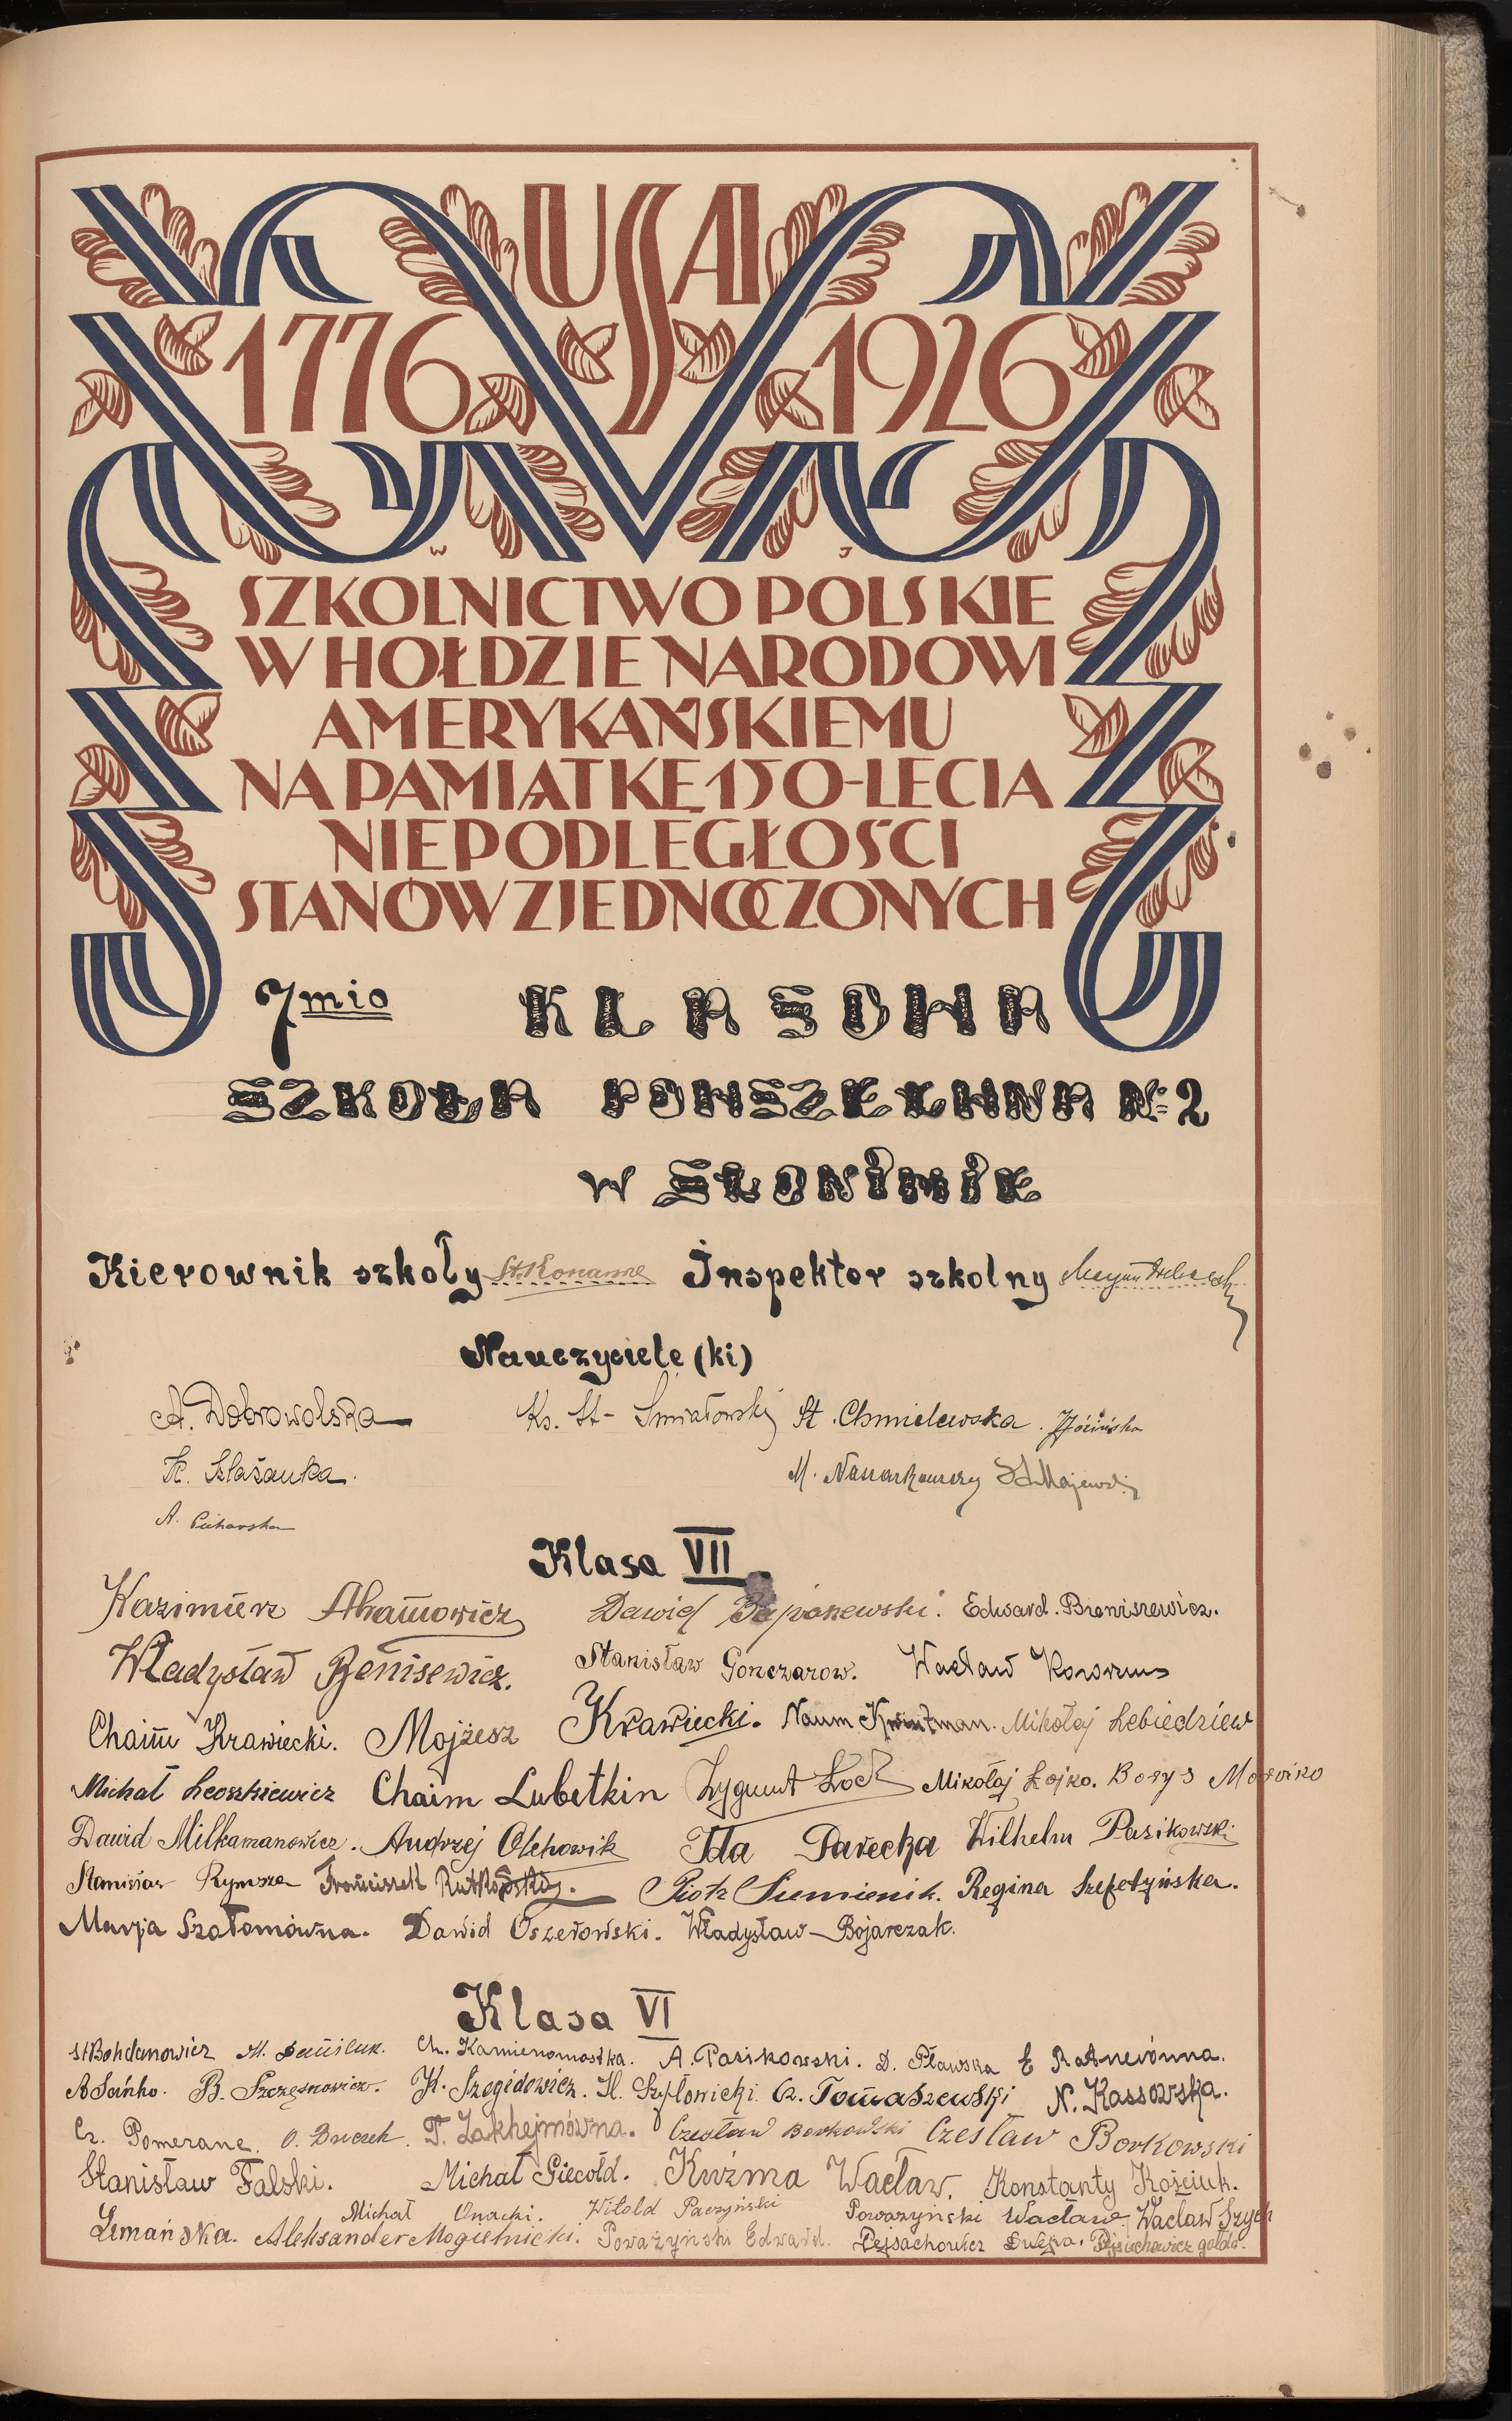 USA
1776 1926
W J
SZKOLNICTWO POLSKIE
W HOŁDZIE NARODOWI
AMERYKAŃSKIEMU
NA PAMIĄTKĘ 150-LECIA
NIEPODLEGŁOŚCI
STANÓW ZJEDNOCZONYCH
7mio KLASOWA
SZKOŁA POWSZECHNA № 2
w SŁONIMIE
Kierownik szkoły St. Inspektor szkolny
Nauczyciele (ki)
A. Dobrowolska Ks. St. St. Chmielewska.
M. Majewski
A.
Klasa VII
Kazimierz Dawid Edward. Broniszewicz.
Władysław Benisewicz. Stanisław Gonczarow. Wacław
Chaim Krawiecki. Mojżesz Krawiecki. Naum Kwintman. Mikołaj Lebiedziew
Michał Leoszkiewicz Chaim Lubetkin Zygmunt Mikołaj Łojko. Borys
Dawid Milkamanowicz. Andrzej Olchowik Ida Parecka Wilhelm Pasikowski
Stanisław Rymsza Franciszek Rutkowski. Piotr Siemienik. Regina Szepetyńska.
Marja Szołomówna. Dawid Oszerowski. Władysław Bojarczak.
Klasa VI
St Bohdanowicz M. Daniluk. Ch. Kamienomostka. A. Pasikowski. D. Pławska E Ratnerówna.
B. Szczęsnowicz. K. Szegidewicz. H. Szyłowicki. Cz. Tomaszewski N. Kassowska.
Cz. Pomeranc. O. T. Zakhejmówna. Czesław Borkowski Czesław Borkowski
Stanisław Falski. Michał Giecołd. Kuźma Wacław. Konstanty Kościuk.
Michał Onacki. Witold Paczyński Powarzyński Wacław Wacław Szych
Lemańska. Aleksander Mogielnicki. Poważyński Edward. Pejsachowicz